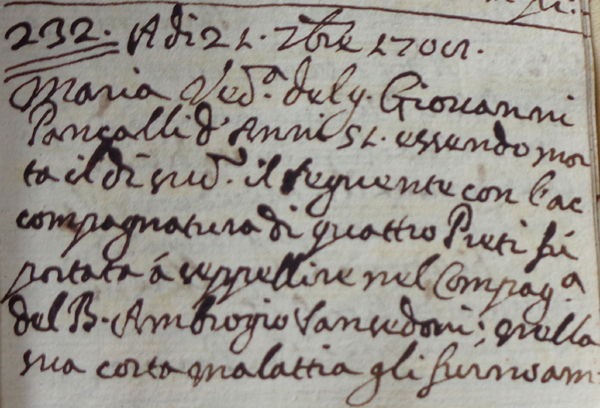 232. A di 21. 7bre 170
Maria Ved.ª del q. Giovanni
Pancalli d'Anni 51. essendo mor
ta il di sud.º il seguente con l'ac
compagnatura di quattro Preti fú
portata á seppellire nel Compag.ª
del B. Ambrogio Sansedoni; nella
sua corta malattia gli furno am